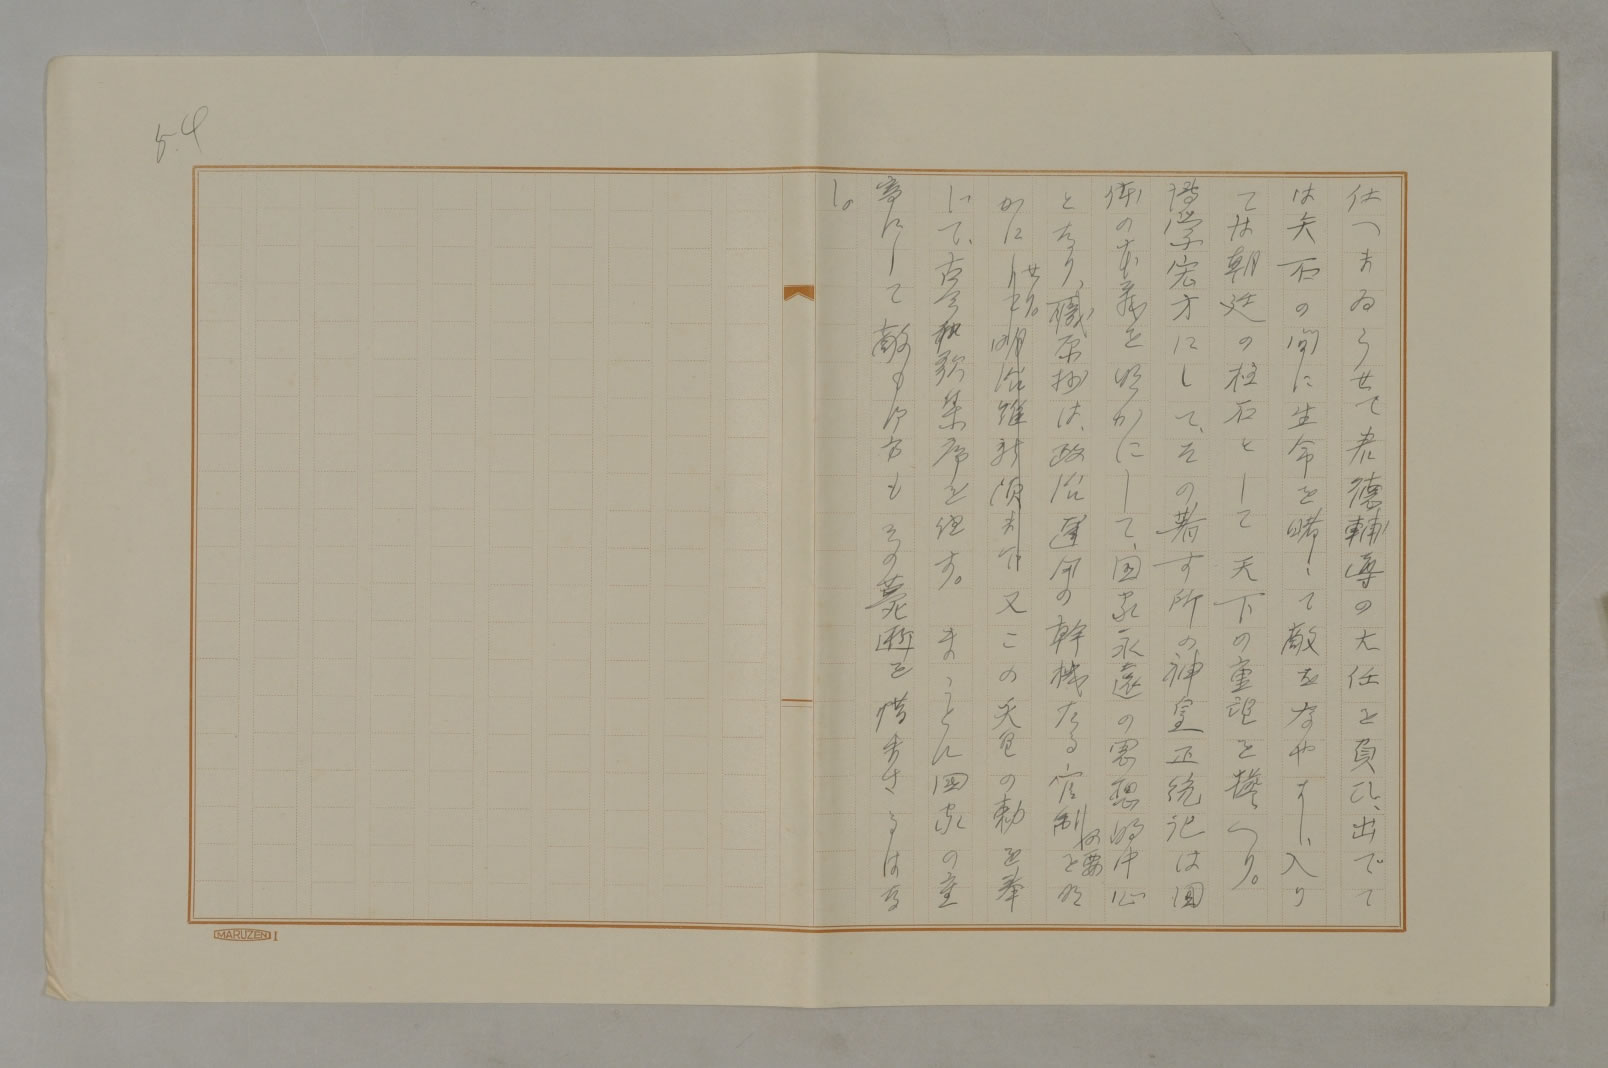 54
仕へまゐらせて君徳輔導の大任を負ひ、出でて
は矢石の間に生命を賭して敵をなやまし、入り
ては朝廷の柱石として天下の重望を擔へり。
博学宏才にして、その著す所の神皇正統記は国
体の本義を明かにして、国家永遠の思想的中心
となり、職原抄は、政治運用の幹機たる官制の要を明
かにせり。明治維新頃まで又この天皇の勅を奉
じて、古今和歌集序を註す。まことに国家の重
寄にして敵も味方もその薨逝を惜まざるはな
し。
MARUZEN I